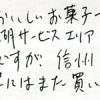 おいしいお菓子
明サービスエリア
ですが 信州
にはまた買い